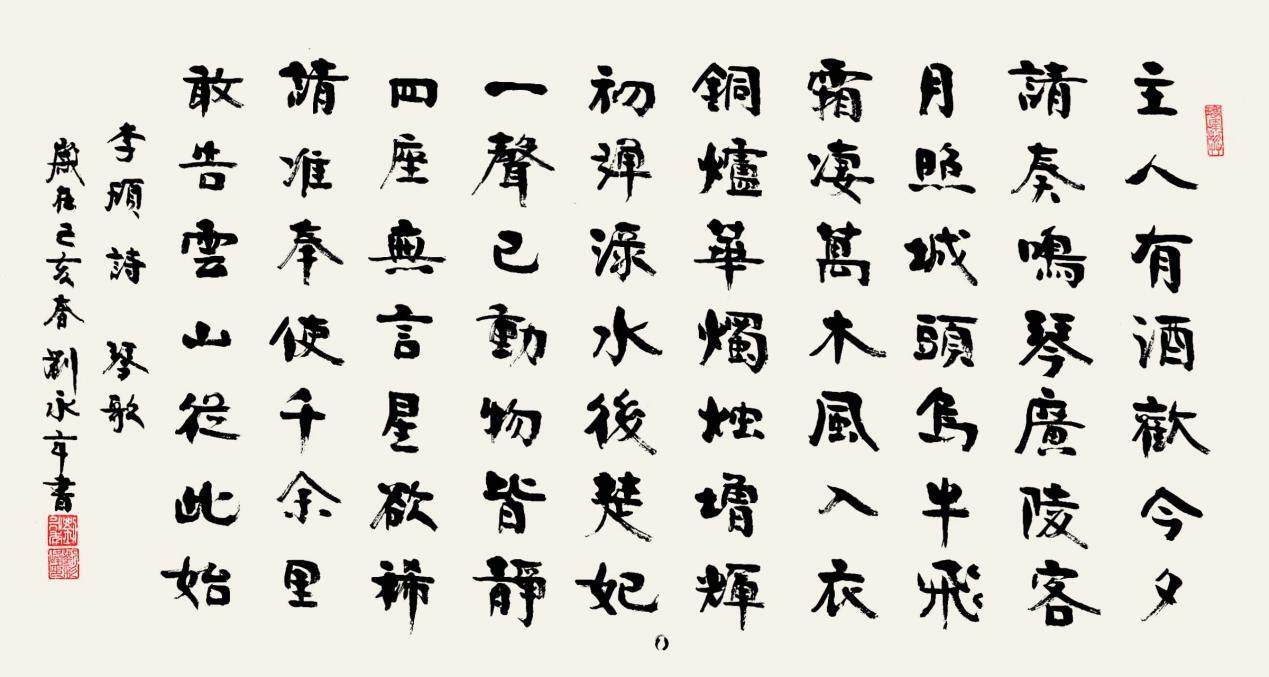 主人有酒歡今夕
請奏鳴琴廣陵客
月照城頭烏半飛
霜淒萬木風入衣
銅爐華燭燭增輝
初彈淥水後楚妃
一聲已動物皆靜
四座無言星欲稀
請淮奉使千余里
敢告雲山從此始
李頎詩 琴歌
歲在己亥春 劉永年書